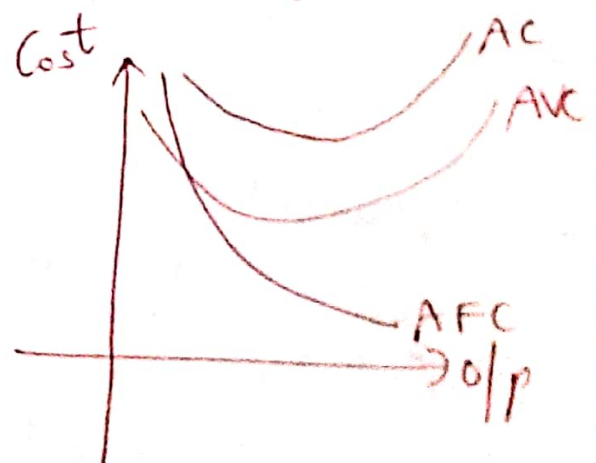 Cost
AC
AVC
AFC
o/p